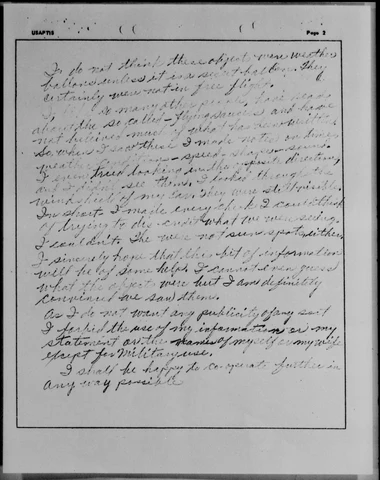 USAPTIS Page 2
I do not think these objects were weather
balloons unless it is a secret balloon. They
certainly were not in free flight.
I, like so many other people, have read
about the so called - flying saucers and have
not believed most of what has been written.
So, when I saw these I made notes on time,
weather condition - speed - shape - sound.
I even tried looking in the opposite direction,
and I didn't see them. I looked through the
windshield of my car. They were still visible.
In short I made every check I could think
of trying to discredit what we were seeing.
I couldn't. The were not sun spots either.
I sincerely hope that this bit of information
will be of some help. I cannot even guess
what the object were but I am definitely
convinced we saw them.
As I do not want any publicity of any sort
I forbid the use of my information or my
statement or the names of myself or my wife
except for military use.
I shall be happy to co-operate further in
any way possible